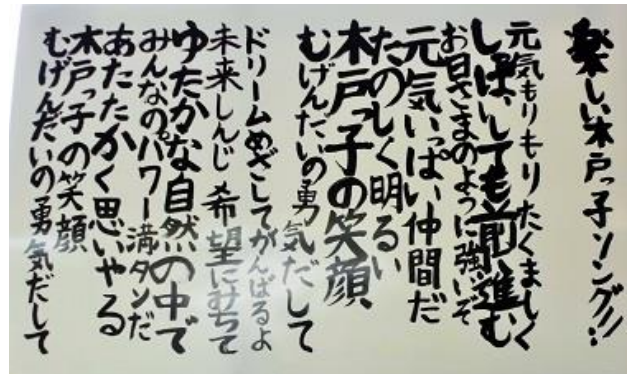 楽しい木戸っ子ソング!!
元気もりもりたくましく
しっぱいしても前へ進む
お日さまのように強いぞ
元気いっぱい仲間だ
たのしく明るい
木戸っ子の笑顔
むげんだいの勇気だして
ドリームめざしてがんばるよ
未来しんじ希望にみちて
ゆたかな自然の中で
みんなのパワー満タンだ
あたたかく思いやる
木戸っ子の笑顔
むげんだいの勇気だして